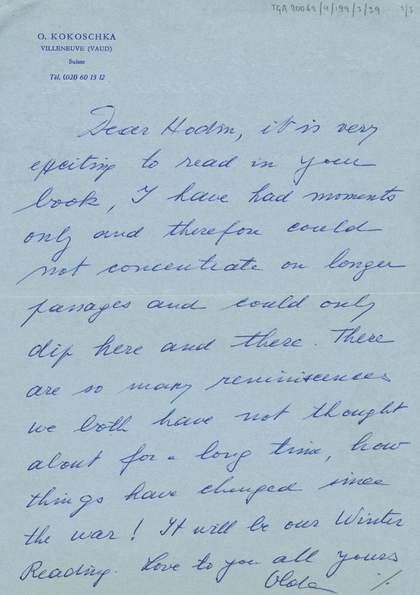 TGA 20062/4/199/2/29 1/2
O. KOKOSCHKA
VILLENEUVE (VAUD)
Suisse
Tél. (021) 60 13 12
Dear Hodin, it is very
exciting to read in your
book, I have had moments
only and therefore could
not concentrate on longer
passages and could only
dip here and there. There
are so many reminiscences
we both have not thought
about for a long time, how
things have changed since
the war! It will be our Winter
Reading. Love to you all yours
Olda ./.